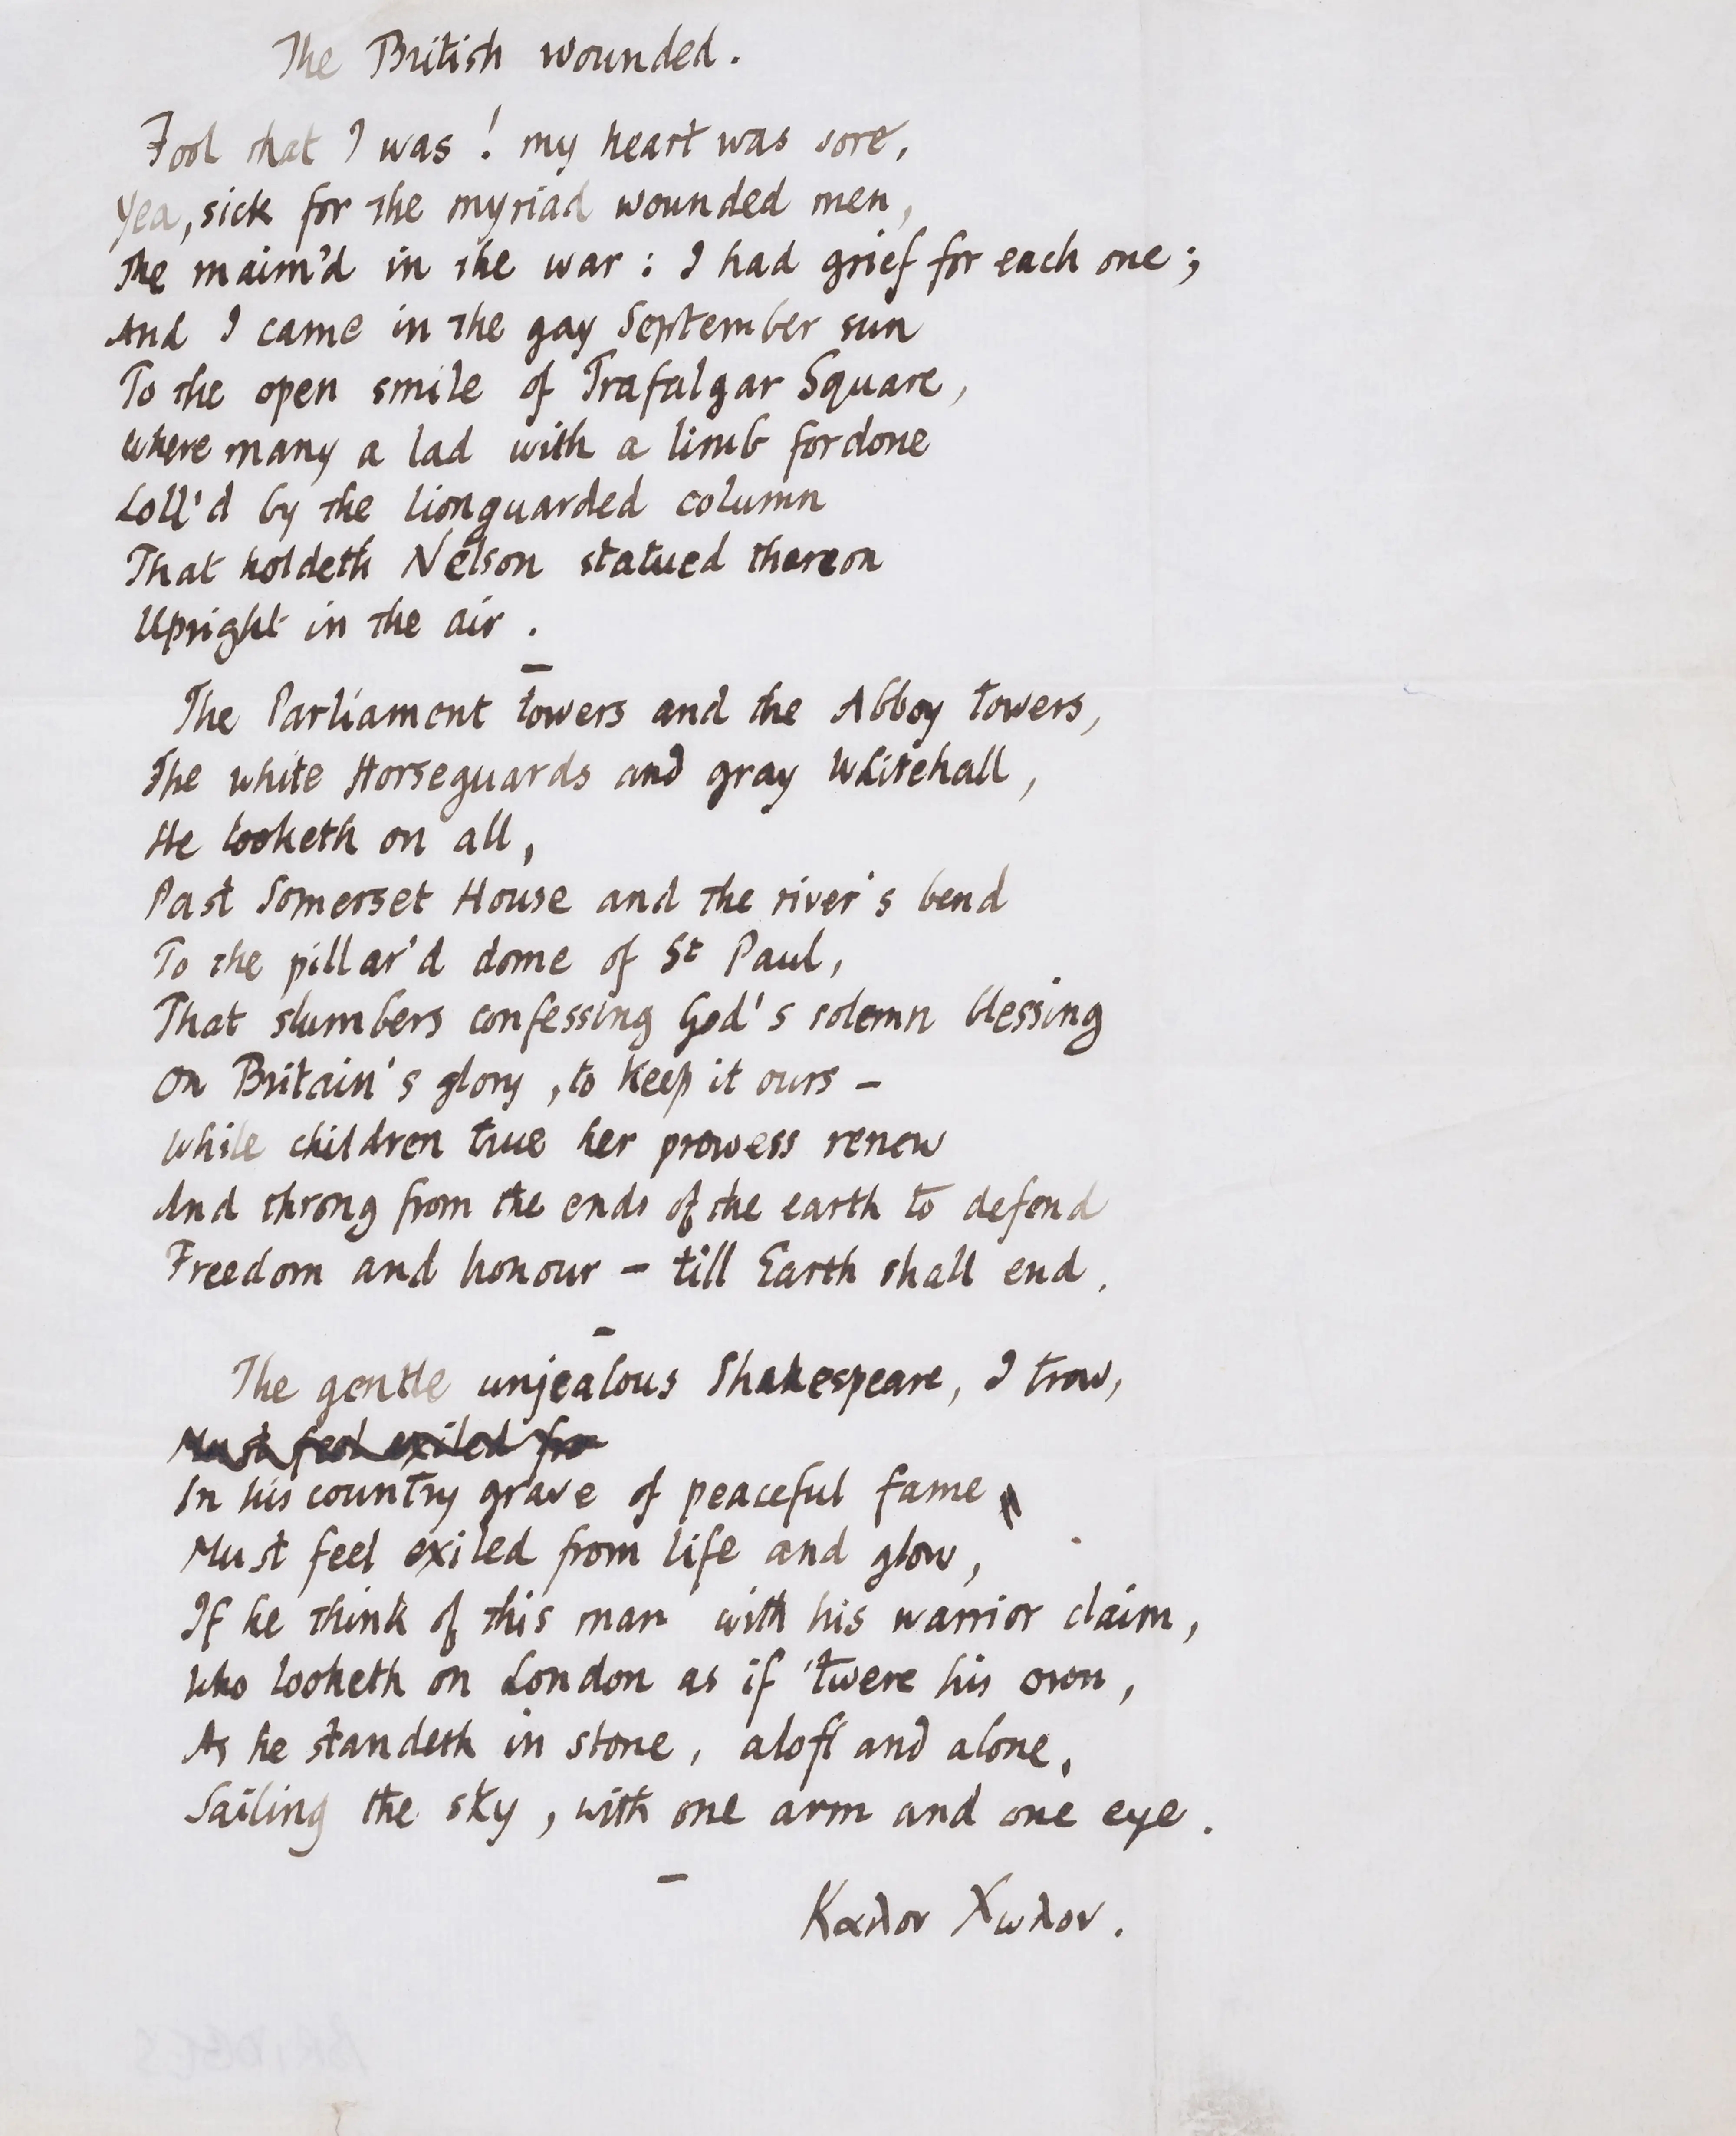 The British Wounded.
Fool that I was! my heart was sore,
Yea, sick for the myriad wounded men,
The maim'd in the war: I had grief for each one;
And I came in the gay September sun
To the open smile of Trafalgar Square,
Where many a lad with a limb fordone
Loll'd by the lionguarded column
That holdeth Nelson statued thereon
Upright in the air.
The Parliament towers and the Abbey towers,
The white Horseguards and gray Whitehall,
He looketh on all,
Past Somerset House and the river's bend
To the pillar'd dome of St Paul,
That slumbers confessing God's solemn blessing
On Britain's glory, to keep it ours –
While children true her prowess renew
And throng from the ends of the earth to defend
Freedom and honour – till Earth shall end.
The gentle unjealous Shakespeare, I trow,
Must feel exiled fro
In his country grave of peaceful fame
Must feel exiled from life and glow,
If he think of this man with his warrior claim,
Who looketh on London as if 'twere his own,
As he standeth in stone, aloft and alone,
Sailing the sky, with one arm and one eye.
Καλον Χωλον.
BRIDGES